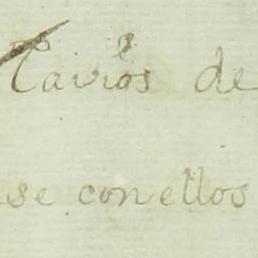 Tavios de
se con ellos